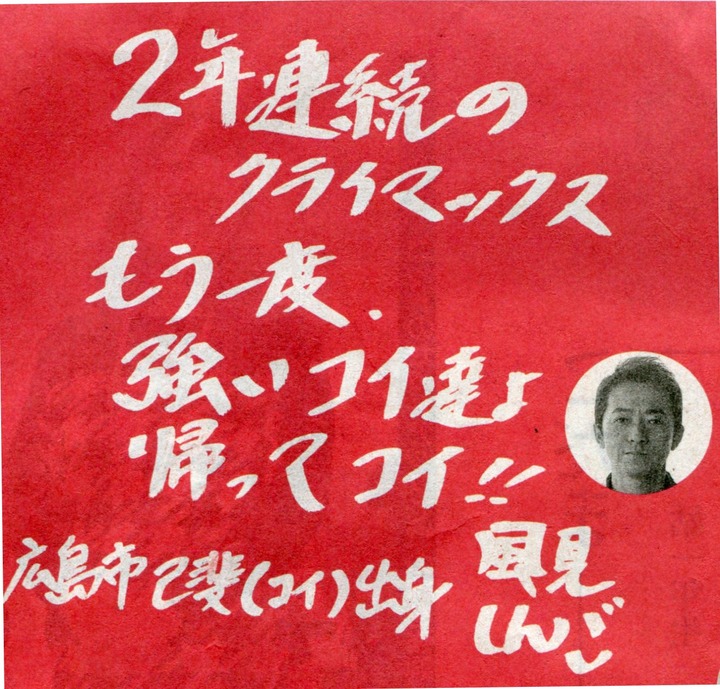 2年連続の
クライマックス
もう一度、
強いコイ達よ
帰ってコイ!!
広島市己斐(コイ)出身
風見しんご